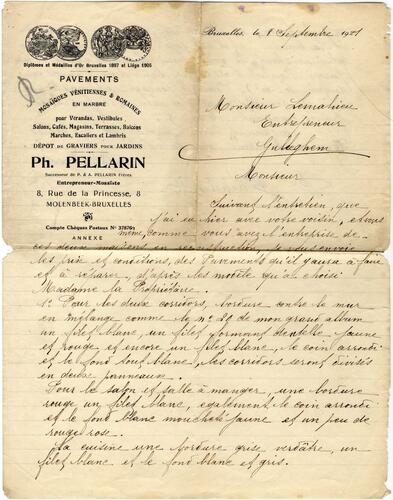 Diplômes et Médailles d'Or Bruxelles 1897 et Liége 1905
PAVEMENTS
MOSAIQUES VÉNITIENNES & ROMAINES
EN MARBRE
pour Vérandas, Vestibules
Salons, Cafés, Magasins, Terrasses, Balcons
Marches, Escaliers et Lambris
DÉPOT DE GRAVIERS POUR JARDINS
PH. PELLARIN
Successeur de P. & A. PELLARIN Frères
Entrepreneur-Mosaïste
8, Rue de la Princesse, 8
MOLENBEEK-BRUXELLES
Compte Chèques Postaux N° 37876
ANNEXE
Bruxelles, le 1 Septembre 1921
Monsieur Lemahieu
Entrepreneur
Gulleghem
Monsieur
Suivant l'entretien, que
j'ai eu hier avec votre voisin, et vous
même, comme vous avez l'entreprise de
ces deux maisons en construction, je vous envoie
les prix et conditions, des Pavements qu'il y aura à faire
et à réparer, d'après les modèles qu'a choisi
Madame la Propriétaire.
1° Pour les deux corridors, bordure contre le mur
en mélange comme le n° 25 de mon grand album
un filet blanc, un filet formant dentelle jaune
et rouge et encore un filet blanc, le coin arrondi
et le fond blanc, les corridors seront divisés
en deux panneaux.
Pour le salon et salle à manger, une bordure
rouge un filet blanc, également le coin arrondi
et le fond blanc moucheté jaune et un peu de
rouge rose.
La cuisine une bordure grise verdâtre, un
filet blanc et le fond blanc et gris.